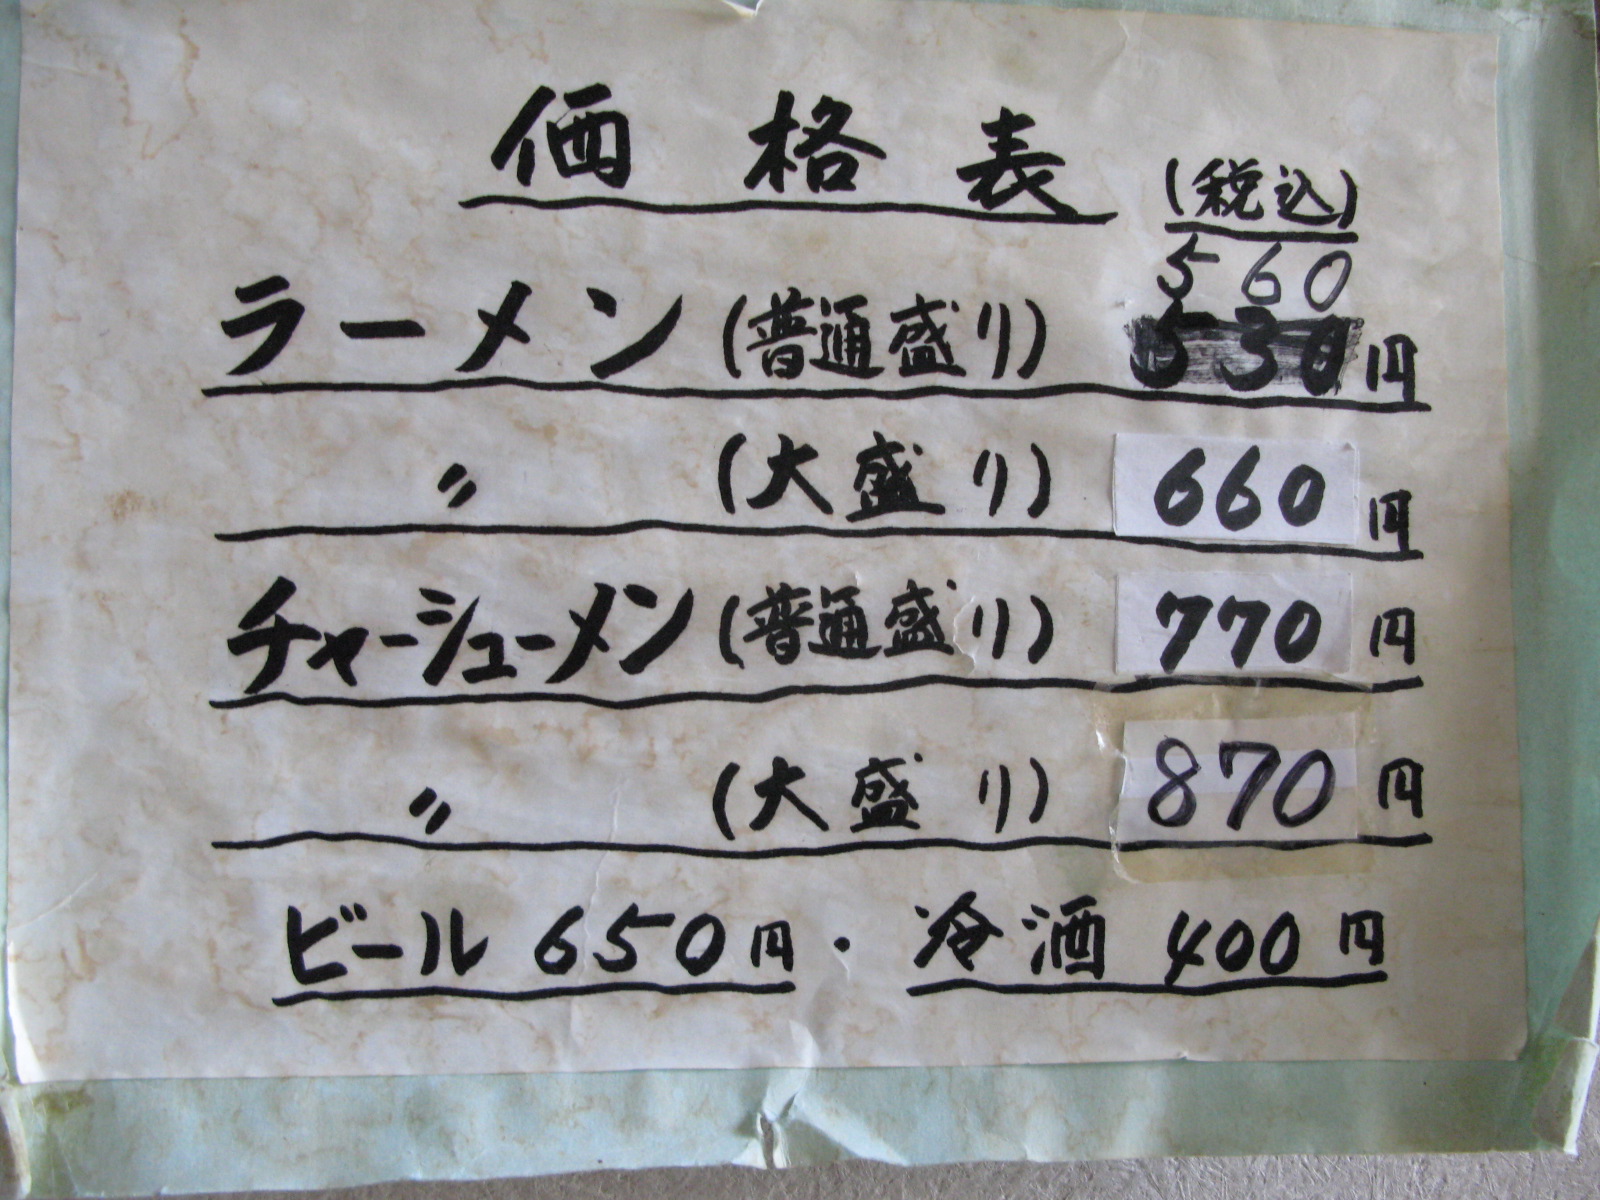 価格表 (税込)
560
ラーメン (普通盛り) 530円
〃 (大盛り) 660円
チャーシューメン (普通盛り) 770円
〃 (大盛り) 870円
ビール 650円・冷酒 400円